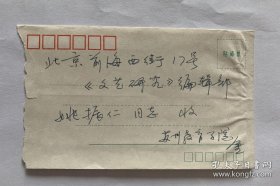 贴邮票
北京前海西街17号
《文艺研究》编辑部
姚振仁 同志 收
苏州教育学院